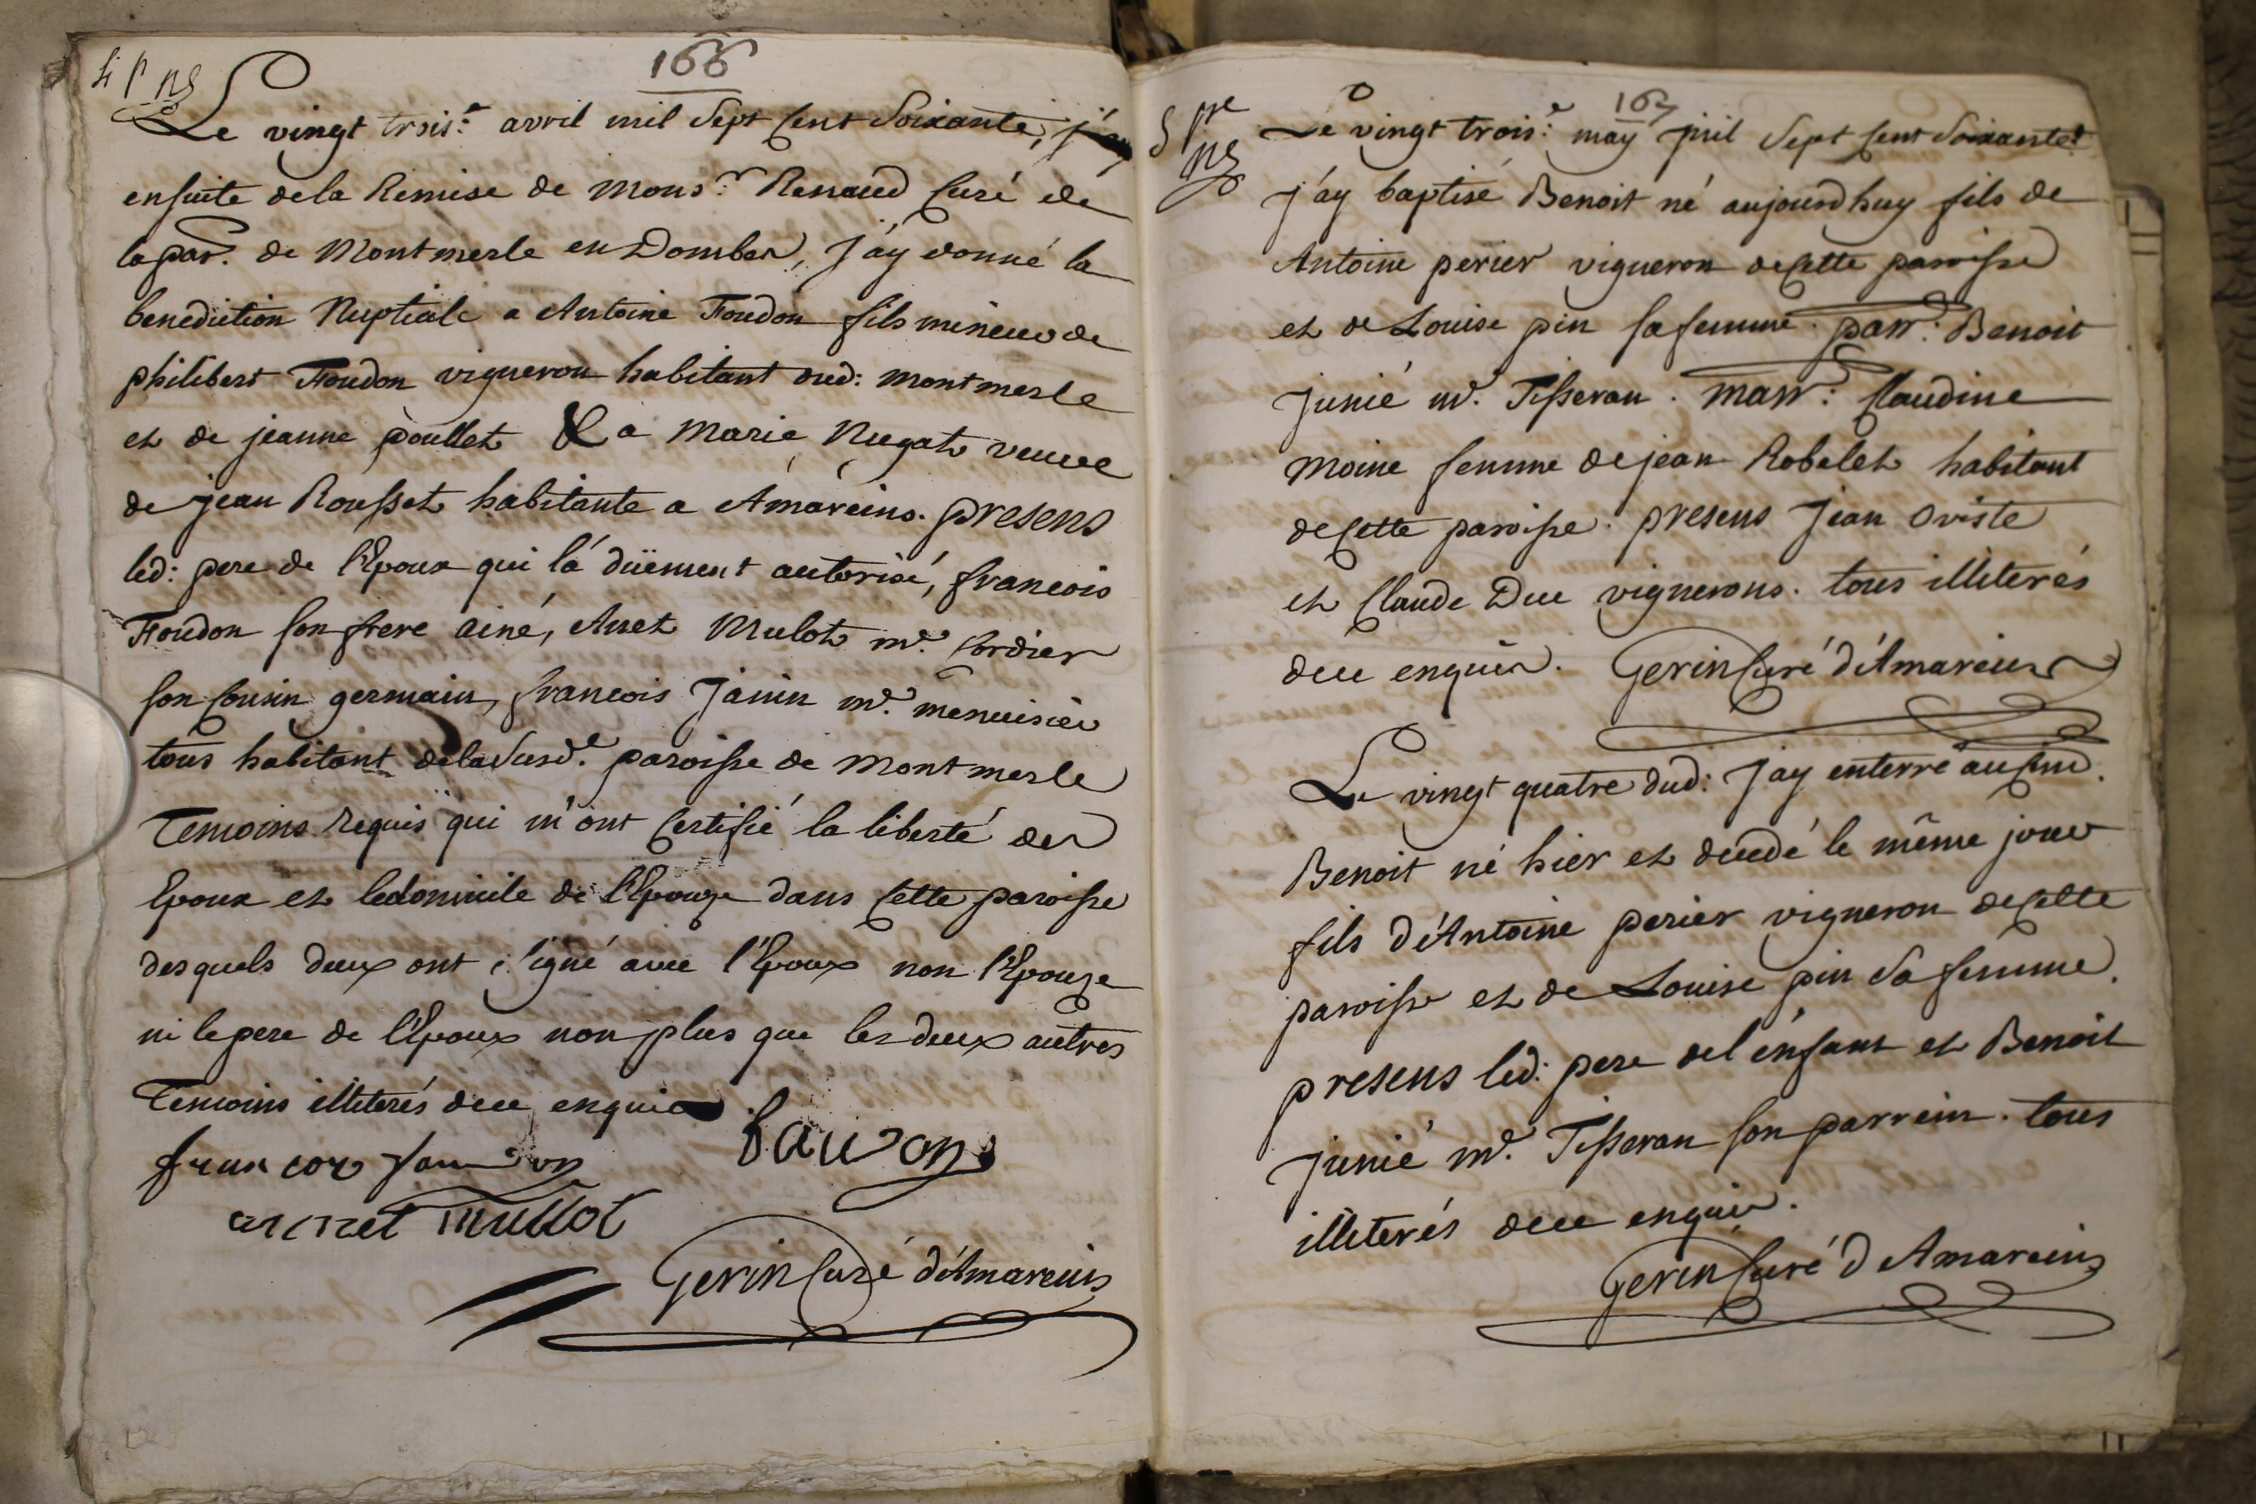 166
Le vingt trois.e avril mil sept cent soixante, j'ay
ensuite de la Remise de Mons.r Renaud curé de
la par. de Montmerle en Dombes, j'ay donné la
benediction Nuptiale a Antoine Foudon fils mineur de
philibert Foudon vigneron habitant dud: montmerle
et de jeanne poullet & a Marie Nugat veuve
de jean Rousset habitante a Amareins. presens
led: pere de l'Epoux qui l'a düement autorisé, francois
Foudon son frere ainé, Anet Mulot m.e cordier
son cousin germain, francois Janin m.e menuisier
tous habitant de la susd.e paroisse de Montmerle
Temoins requis qui m'ont certifié la liberté des
Epoux et le domicile de l'Epouze dans cette paroisse
desquels deux ont signé avec l'Epoux non l'Epouze
ni le pere de l'Epoux non plus que les deux autres
Temoins illiterés de ce enquis
mullot
Gerin Curé d'Amareins
167
Le vingt trois.e may mil sept cent soixante
j'ay baptisé Benoit né aujourdhuy fils de
Antoine perier vigneron de cette paroisse
et de Louise pin sa femme. parr: Benoit
junié m.e Tisseran. marr: Claudine
Moine femme de jean Robelet habitant
de cette paroisse. presens Jean oviste
et Claude Duc vignerons. tous illiterés
de ce enquis. Gerin Curé d'Amareins
Le vingt quatre dud: j'ay enterré au cim.
Benoit né hier et décédé le même jour
fils d'Antoine perier vigneron de cette
paroisse et de Louise pin sa femme.
presens led: pere de l'enfant et Benoit
junié m.e Tisseran son parrein. tous
illiterés de ce enquis.
Gerin Curé d'Amareins